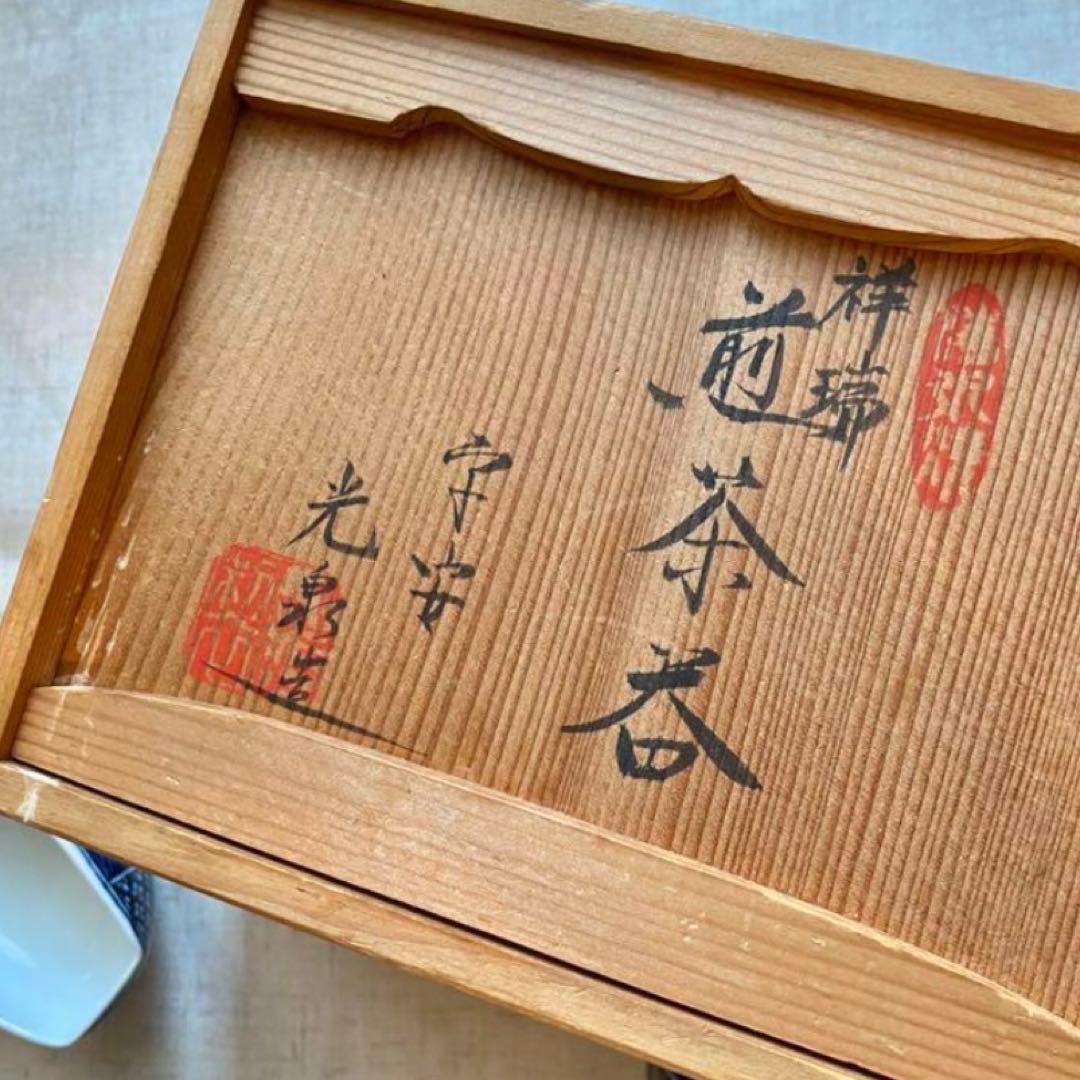 祥瑞
煎茶器
平安
光泉造